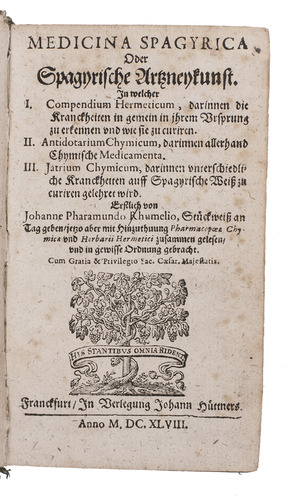 MEDICINA SPAGYRICA
Oder
Spagyrische Artzneykunst.
In welcher
I. Compendium Hermeticum, darinnen die
Kranckheiten in gemein in jhrem Vrsprung
zu erkennen vnd wie sie zu curiren.
II. Antidotarium Chymicum, darinnen allerhand
Chymische Medicamenta.
III. Jatrium Chymicum, darinnen vnterschiedli-
che Kranckheiten auff Spagyrische Weiß zu
curiren gelehret wird.
Erstlich von
Johanne Pharamundo Rhumelio, Stückweiß an
Tag geben/jetzo aber mit Hinzuthuung Pharmacopœæ Chy-
micæ vnd Herbarii Hermetici zusammen gelesen/
vnd in gewisse Ordnung gebracht.
Cum Gratia & Privilegio Sac. Cæsar. Majestatis.
HIS STANTIBUS OMNIA RIDENT
Franckfurt/ In Verlegung Johann Hüttners.
Anno M. DC. XLVIII.